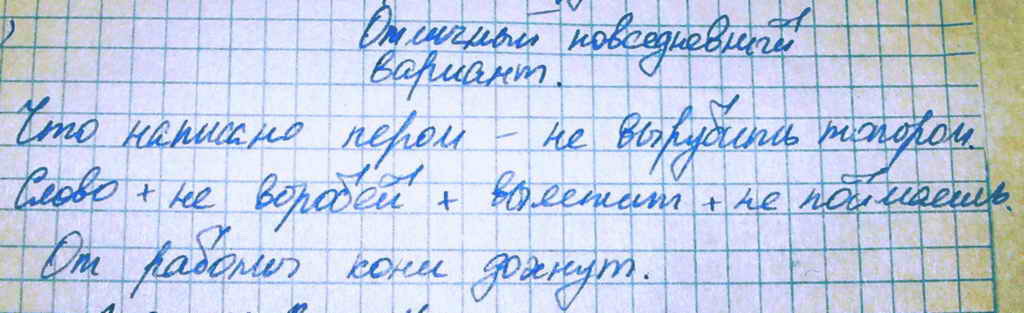 Отличный повседневный
вариант.
Что написано пером - не вырубить топором.
Слово + не воробей + вылетит + не поймаешь.
От работы кони дохнут.